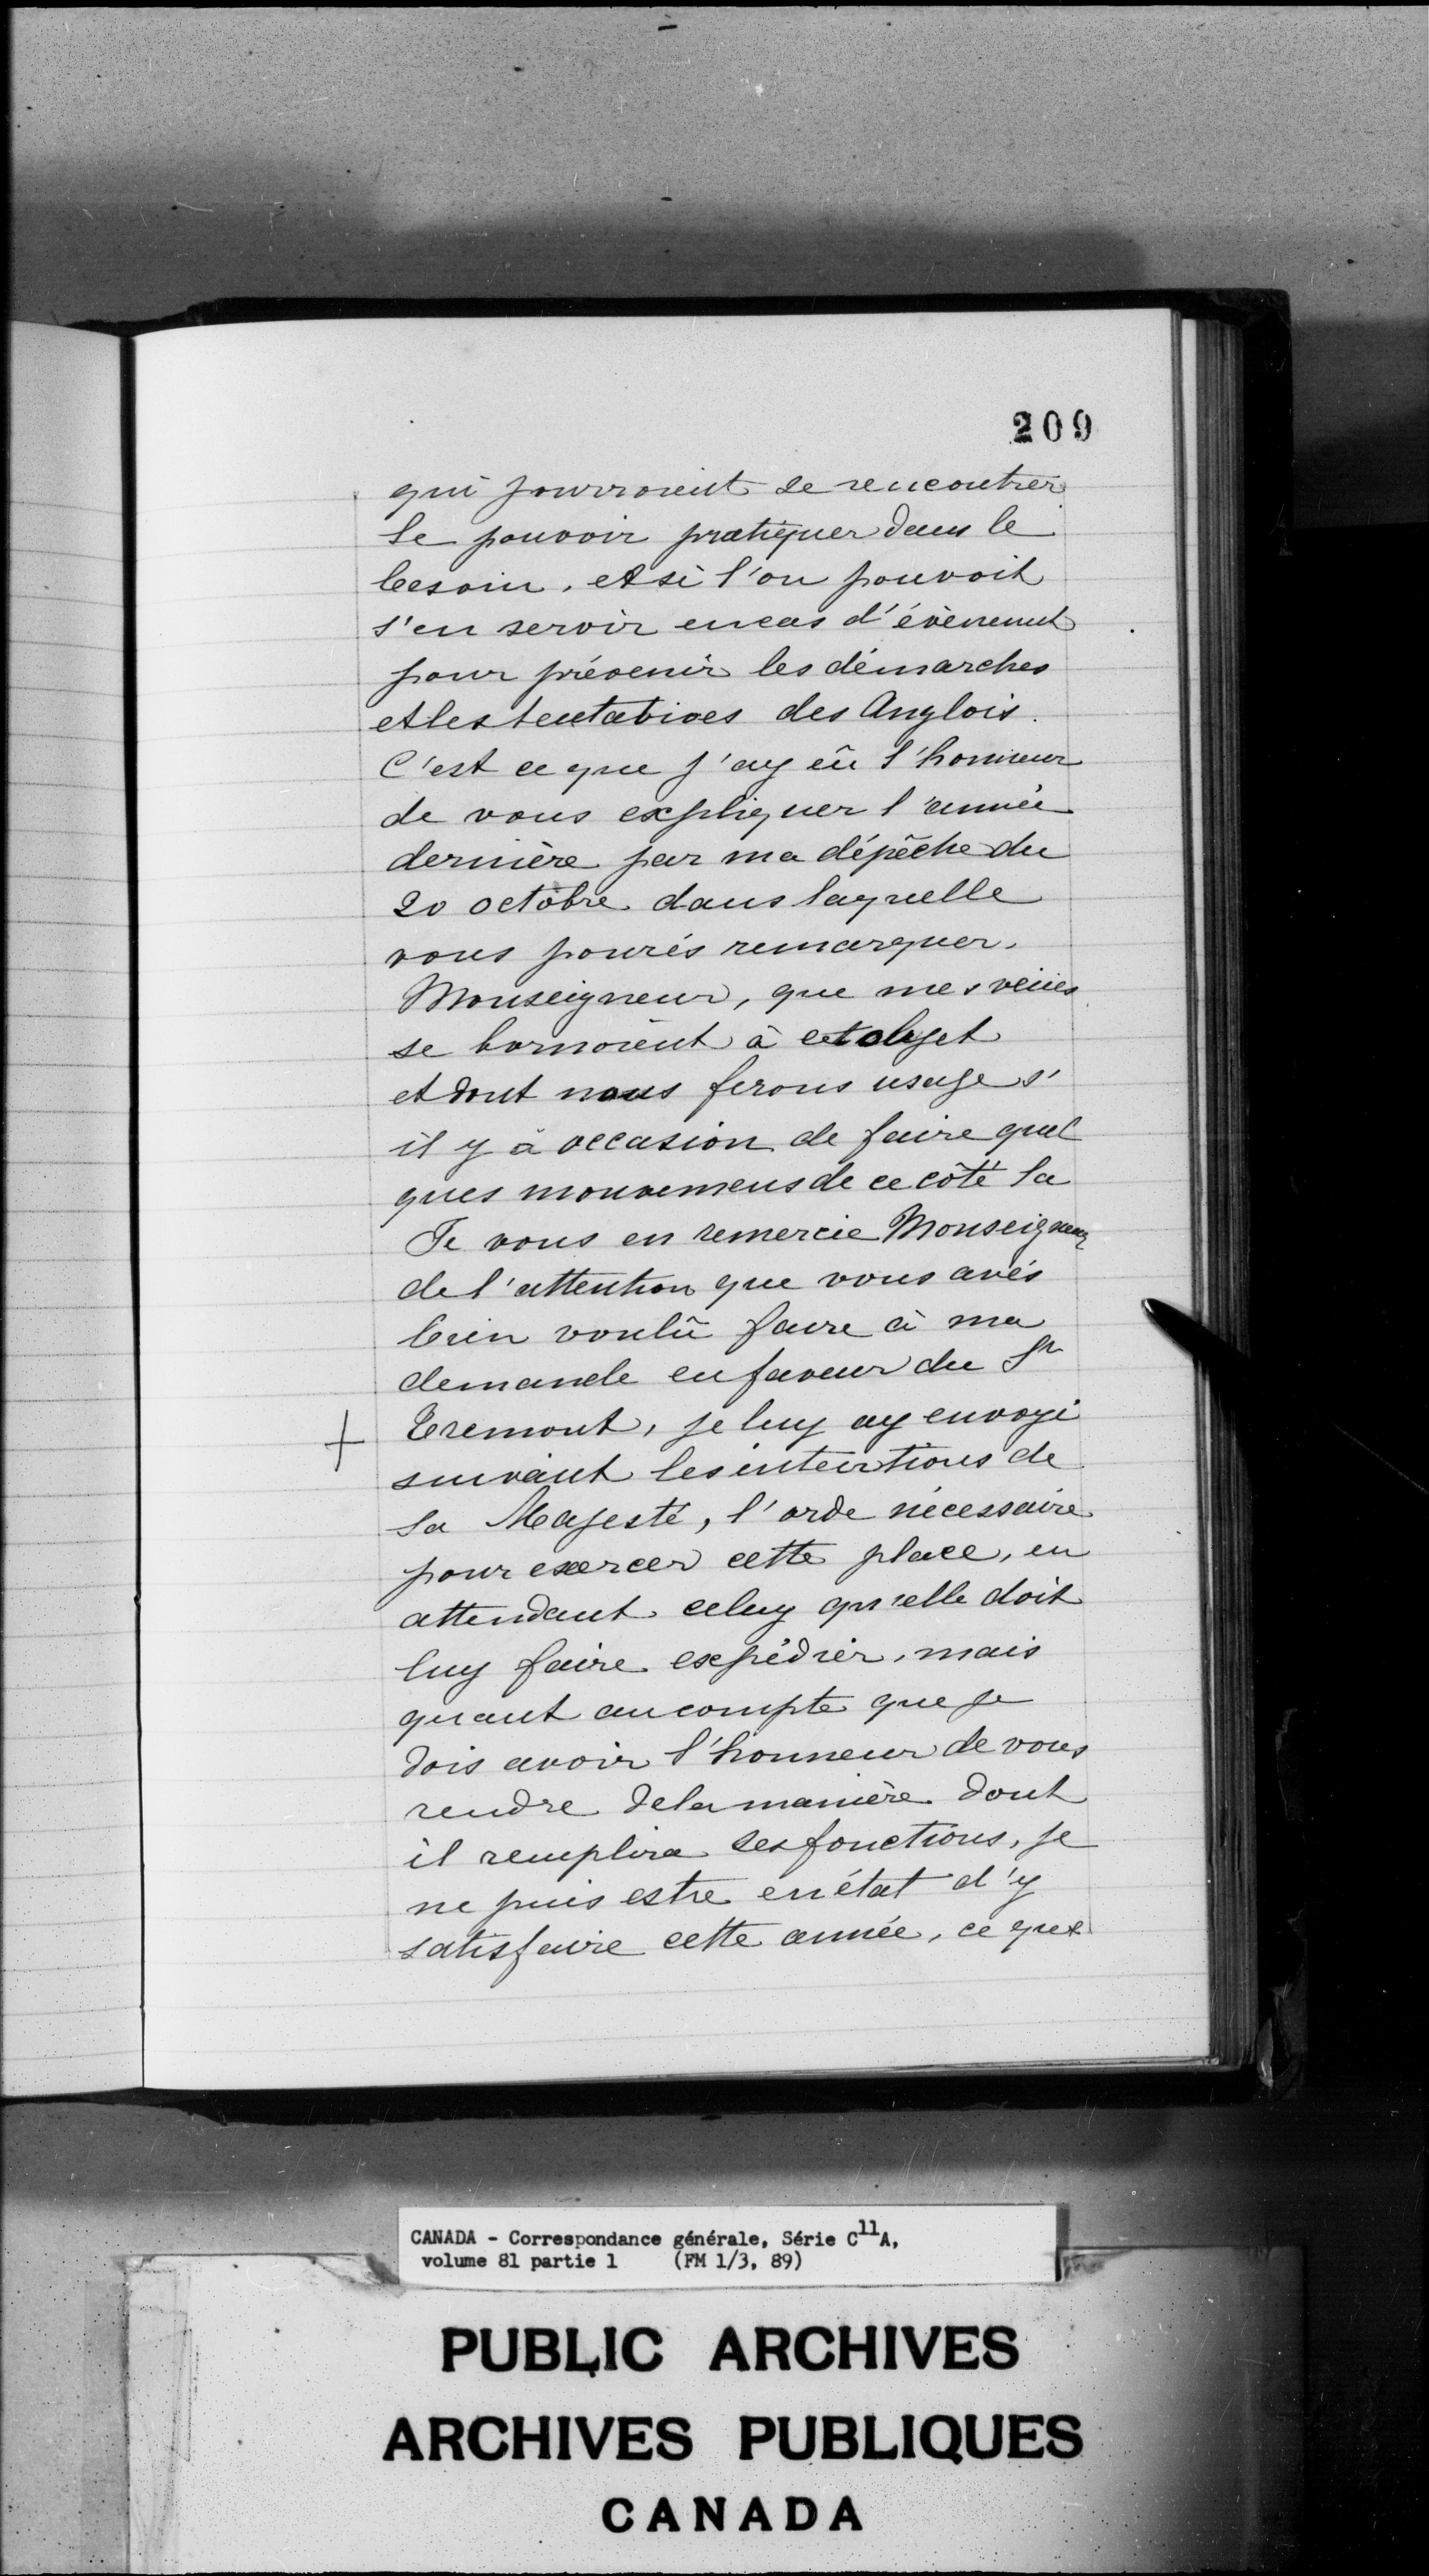 209
qui pourroient se rencontrer
le pouvoir pratiquer dans le
besoin, et si l'on pouvoit
s'en servir en cas d'évènement
pour prévenir les démarches
et les tentatives des Anglois.
C'est ce que j'ay eû l'honneur
de vous expliquer l'année
dernière par ma dépêche du
20 octobre dans laquelle
vous pourés remarquer,
Monseigneur, que mes veües
se bornoient à cet objet
et dont nous ferons usage s'
il y à occasion de faire quel
ques mouvemens de ce côté la
Je vous en remercie Monseigneur
de l'attention que vous avés
bien voulû faire à ma
demande en faveur du Sr
+ Tremont, je luy ay envoyé
suivant les intentions de
Sa Majesté, l'orde nécessaire
pour exercer cette place, en
attendant celuy qu'elle doit
luy faire expédier, mais
quant au compte que je
dois avoir l'honneur de vous
rendre de la manière dont
il remplira ses fonctions, je
ne puis estre en état d'y
satisfaire cette année, ce que
CANADA - Correspondance générale, Série C11A,
volume 81 partie 1 (FM 1/3, 89)
PUBLIC ARCHIVES
ARCHIVES PUBLIQUES
CANADA